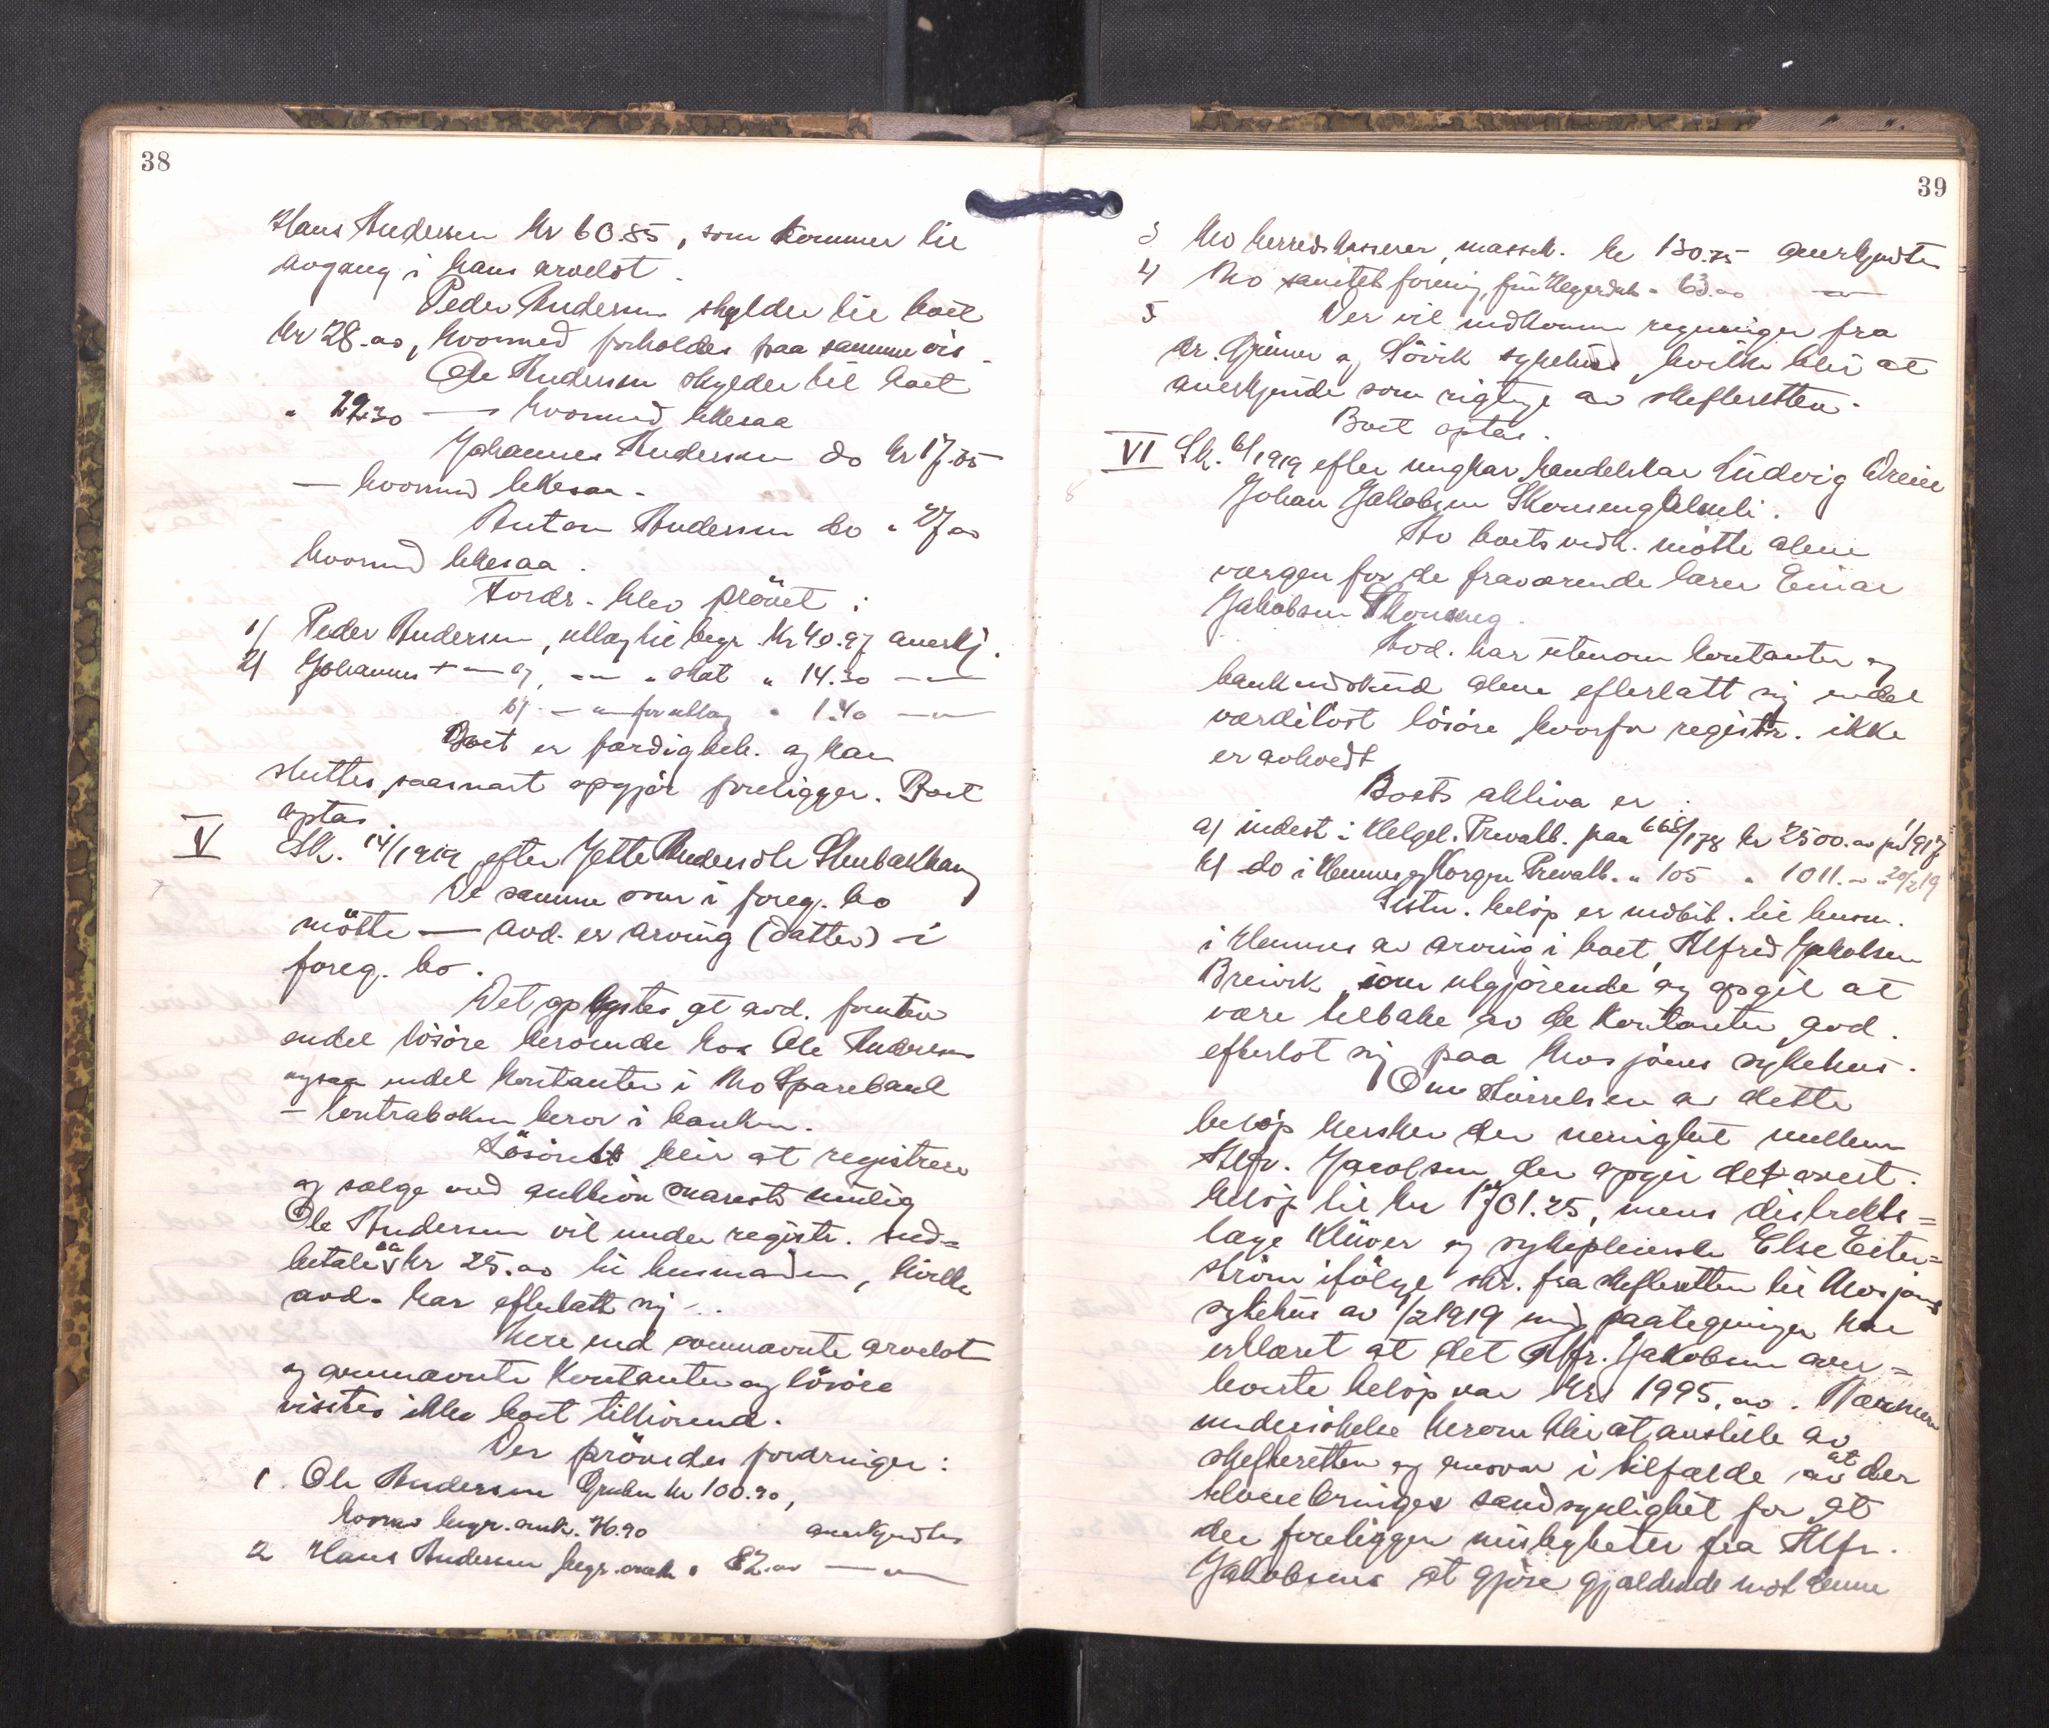 38
Hans Andersen kr 60.85, som kommer til
avgang i hans arvelot.
Peder Andersen skylder til boet
kr 28.00, hvormed forholdes paa samme vis.
Ole Andersen skylder til boet
" 29.30 — hvormed likesaa
Johannes Andersen do kr 17.05
— hvormed likesaa.
Anton Andersen do " 27.00
hvormed likesaa.
Fordr. blev prövet:
1/ Peder Andersen, utlæg til begr. kr 40.97 anerkj.
2/ Johannes —"— a/, —"— " skat " 14.30 —"—
b/ —"— for utlæg " 1.40 —"—
Boet er færdigbeh. og kan
sluttes, saasnart opgjör foreligger. Boet
optas.
V Sk. 14/1919 efter Jette Andersdtr
De samme som i foreg. bo
mötte — avd. er arving (datter) i
foreg. bo.
Det oplystes at avd. foruten
endel lösöre beroende hos Ole Andersen
ogsaa endel kontanter i Mo Sparebank
— kontraboken beror i banken.
Lösöret blir at registrere
og sælge ved auktion snarest mulig
Ole Andersen vil under registr. ind=
betale ca kr 25.00 til lensmanden, hvilke
avd. har efterlatt sig.
Mere end ovennævnte arvelot
og ovennævnte kontanter og lösöre
visstes ikke boet tilhörende.
Der prövedes fordringer:
1. Ole Andersen Gruben kr 100.90,
hvorav begr. omk. 76.90 anerkjendtes
2 Hans Andersen begr. omk. " 82.00 —"—
39
3 Mo herredskasserer, massek. kr 130.75 anerkjendtes
4/ Mo sanitetsforening, fru " 63.00 —"—
5 Der vil indkomme regninger fra
dr. og Sövik sykehus, hvilke blir at
anerkjende som rigtige av skifteretten.
Boet optas.
VI Sk. 6/1919 efter ungkar, handelskar Ludvig
Johan Jakobsen
Av boets vedk. mötte alene
vergen for de fraværende lærer Einar
Jakobsen
Avd. har utenom kontanter og
bankindskud alene efterlatt sig endel
værdilöst lösöre, hvorfor registr. ikke
er avholdt
Boets aktiva er:
a/ indest. i Helgel. Privatb. paa 668/178 kr 2500.00 pr 1/1 917
b/ do i Hemnes og Korgen Privatb. " 105 " 1011.— " 20/2 19
Sistn. belöp er indbet. til lensm.
i Hemnes av arving i boet, Alfred Jakobsen
Breivik, som utgjörende og opgit at
være tilbake av de kontanter, avd.
efterlot sig paa Mosjöens sykehus.
Om störrelsen av dette
belöp hersker der uenighet mellem
Alfr. Jacobsen, der opgir det avert.
belöp til kr 1701.25, mens distrikts=
læge Klüwer og sykepleierske Else
ström ifölge skr. fra skifteretten til Mosjöens
sykehus av 1/2 1919 med paategninger har
erklæret at det Alfr. Jakobsen over=
leverte belöp var kr 1995.00. Nærmere
undersökelse herom blir at anstille av
skifteretten og ansvar i tilfælde av at der
bringes sandsynlighet for at
der foreligger misligheter fra Alfr.
Jakobsens at gjöre gjældende mot denne